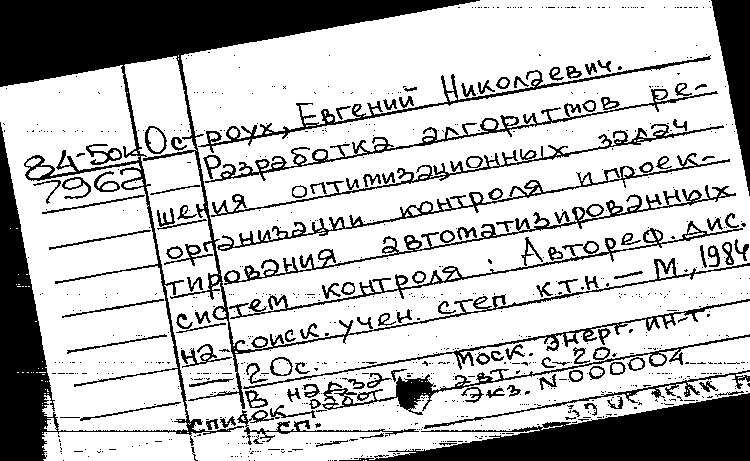 84-5ок
7962
Остроух, Евгений Николаевич.
Разработка алгоритмов ре-
шения оптимизационных задач
организации контроля и проек-
тирования автоматизированных
систем контроля : Автореф. дис.
на соиск. учен. степ. к.т.н. — М., 1984
20с.
В надзаг.: Моск. энерг. ин-т.
Список работ авт.: с 20.
Дсп. Экз. N 000004